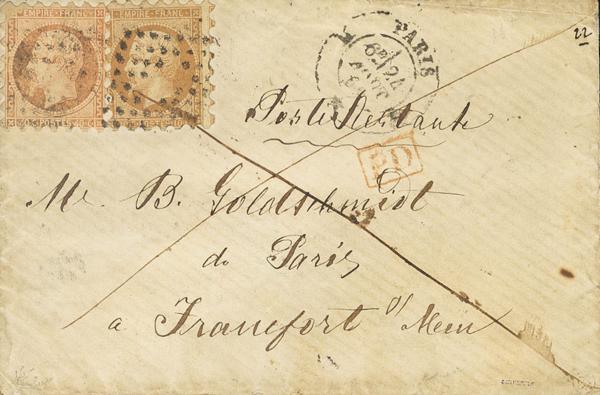 EMPIRE FRANC EMPIRE FRANC
POSTES
PARIS
22
Poste Restante
PD
Mr. B. Goldschmidt
de Paris
a Francfort s/ Mein